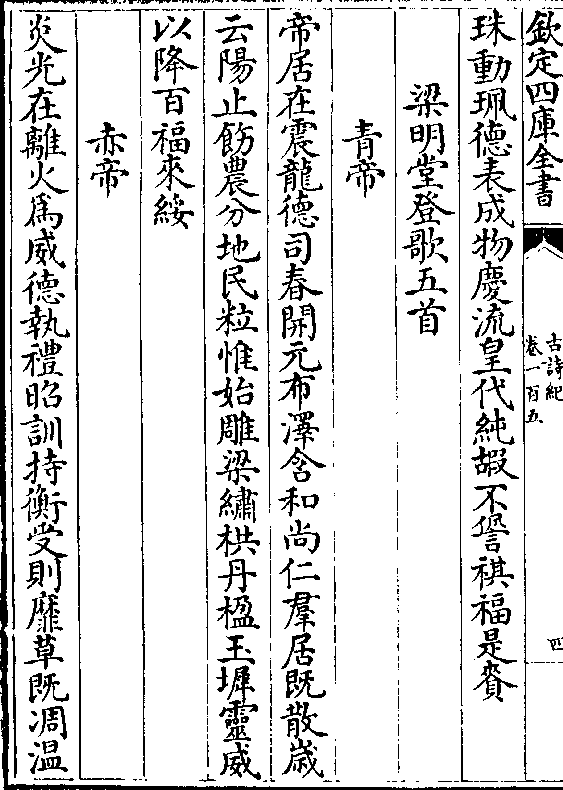 欽定四庫全書
古詩紀
卷一百五
四
珠動珮德表成物慶流皇代純嘏不諐祺福是賚
梁明堂登歌五首
青帝
帝居在震龍德司春開元布澤含和尚仁羣居既散歳
云陽止飭農分地民粒惟始雕梁繡栱丹楹玉墀靈威
以降百福來綏
赤帝
炎光在離火為威德執禮昭訓持衡受則靡草既凋溫